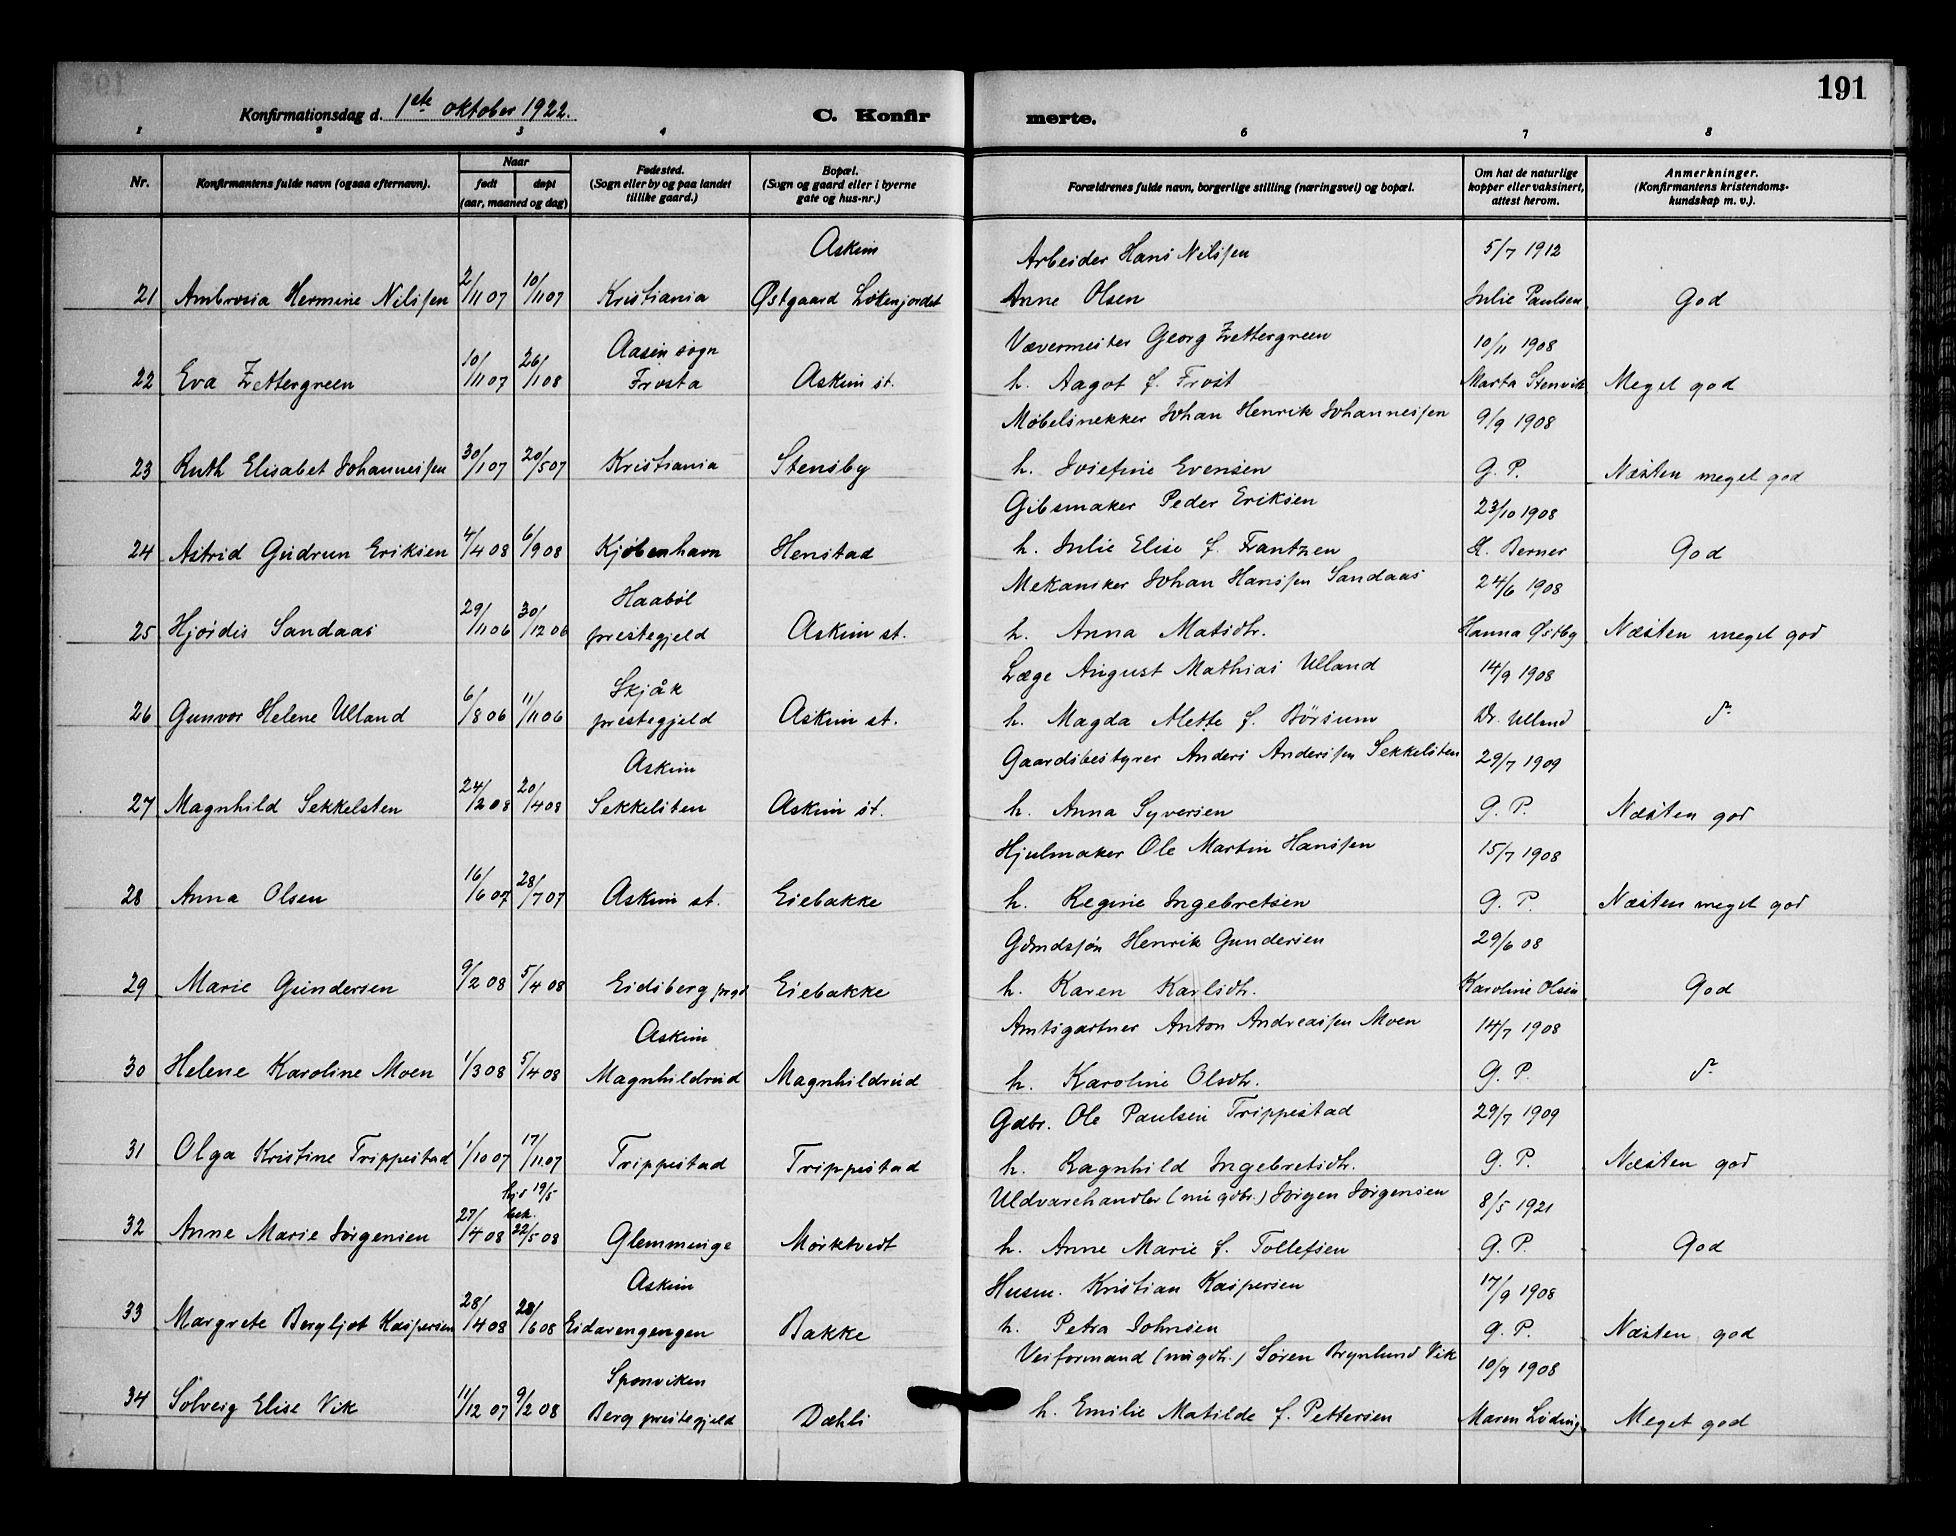 191
Konfirmationsdag d. 1ste oktober 1922.
C. Konfirmerte.
1 2 3 4 6 7 8
Nr. Konfirmantens fulde navn (ogsaa efternavn). Naar født døpt (aar, maaned og dag) Fødested. (Sogn eller by og paa landet tillike gaard.) Bopæl. (Sogn og gaard eller i byerne gate og hus-nr.) Forældrenes fulde navn, borgerlige stilling (næringsvei) og bopæl. Om hat de naturlige kopper eller vaksinert, attest herom. Anmerkninger. (Konfirmantens kristendoms-kundskap m. v.).
Askim Arbeider Hans Nilssen 5/7 1912
21 Ambrosia Hermine Nilssen 2/11 07 10/11 07 Kristiania Østgaard Løkenjordet Anne Olsen Julie Paulsen God
Aasen sogn Vævermester Georg Zettergreen 10/11 1908
22 Eva Zettergreen 10/11 07 26/1 08 Frosta Askim st. h. Aagot f. Frost Marta Stenvik Meget god
Møbelsnekker Johan Henrik Johannessen 9/9 1908
23 Ruth Elisabet Johannessen 30/1 07 20/5 07 Kristiania Stensby h. Josefine Evensen G. P. Næsten meget god
Gibsmaker Peder Eriksen 23/10 1908
24 Astrid Gudrun Eriksen 4/4 08 6/9 08 Kjøbenhavn Henstad h. Julie Elise f. Frantzen H. Berner God
Haabøl Mekaniker Johan Hanssen Sandaas 24/6 1908
25 Hjørdis Sandaas 29/11 06 30/12 06 prestegjeld Askim st. h. Anna Matsdtr. Hanna Østby Næsten meget god
Skjåk Læge August Mathias Ulland 14/9 1908
26 Gunvor Helene Ulland 6/8 06 11/11 06 prestegjeld Askim st. h. Magda Mette f. Børsum Dr. Ulland do
Askim Gaardsbestyrer Anders Anderssen Sekkelsten 29/7 1909
27 Magnhild Sekkelsten 24/2 08 20/4 08 Sekkelsten Askim st. h. Anna Syversen G. P. Næsten god
Hjulmaker Ole Martin Hanssen 15/7 1908
28 Anna Olsen 16/6 07 28/7 07 Askim st. Eiebakke h. Regine Ingebretsen G. P. Næsten meget god
Henrik Gundersen 29/6 08
29 Marie Gundersen 9/2 08 5/4 08 Eidsberg prgd Eiebakke h. Karen Karlsdtr. Karoline Olsen God
Askim Amtsgartner Anton Andreassen Moen 14/7 1908
30 Helene Karoline Moen 1/3 08 5/4 08 Magnhildrud Magnhildrud h. Karoline Olsdtr. G. P. do
Gdbr. Ole Paulsen Trippestad 29/7 1909
31 Olga Kristine Trippestad 1/10 07 17/11 07 Trippestad Trippestad h. Ragnhild Ingebretsdtr. G. P. Næsten god
hjd 19/5 Uldvarehandler (nu gdbr.) Jørgen Jørgensen 8/5 1921
32 Anne Marie Jørgensen 27/4 08 bek. 22/5 08 Glemminge Mørktvedt h. Anne Marie f. Tollefsen G. P. God
Askim Husm. Kristian Kaspersen 17/9 1908
33 Margrete Bergljot Kaspersen 28/4 08 28/6 08 Eidarengengen Bakke h. Petra Johnsen G. P. Næsten god
Sponviken Veiformand (nu gdbr.) Søren Brynlund Vik 10/9 1908
34 Solveig Elise Vik 11/12 07 9/2 08 Berg prestegjeld Dæhli h. Emilie Matilde f. Pettersen Maren Løding Meget god